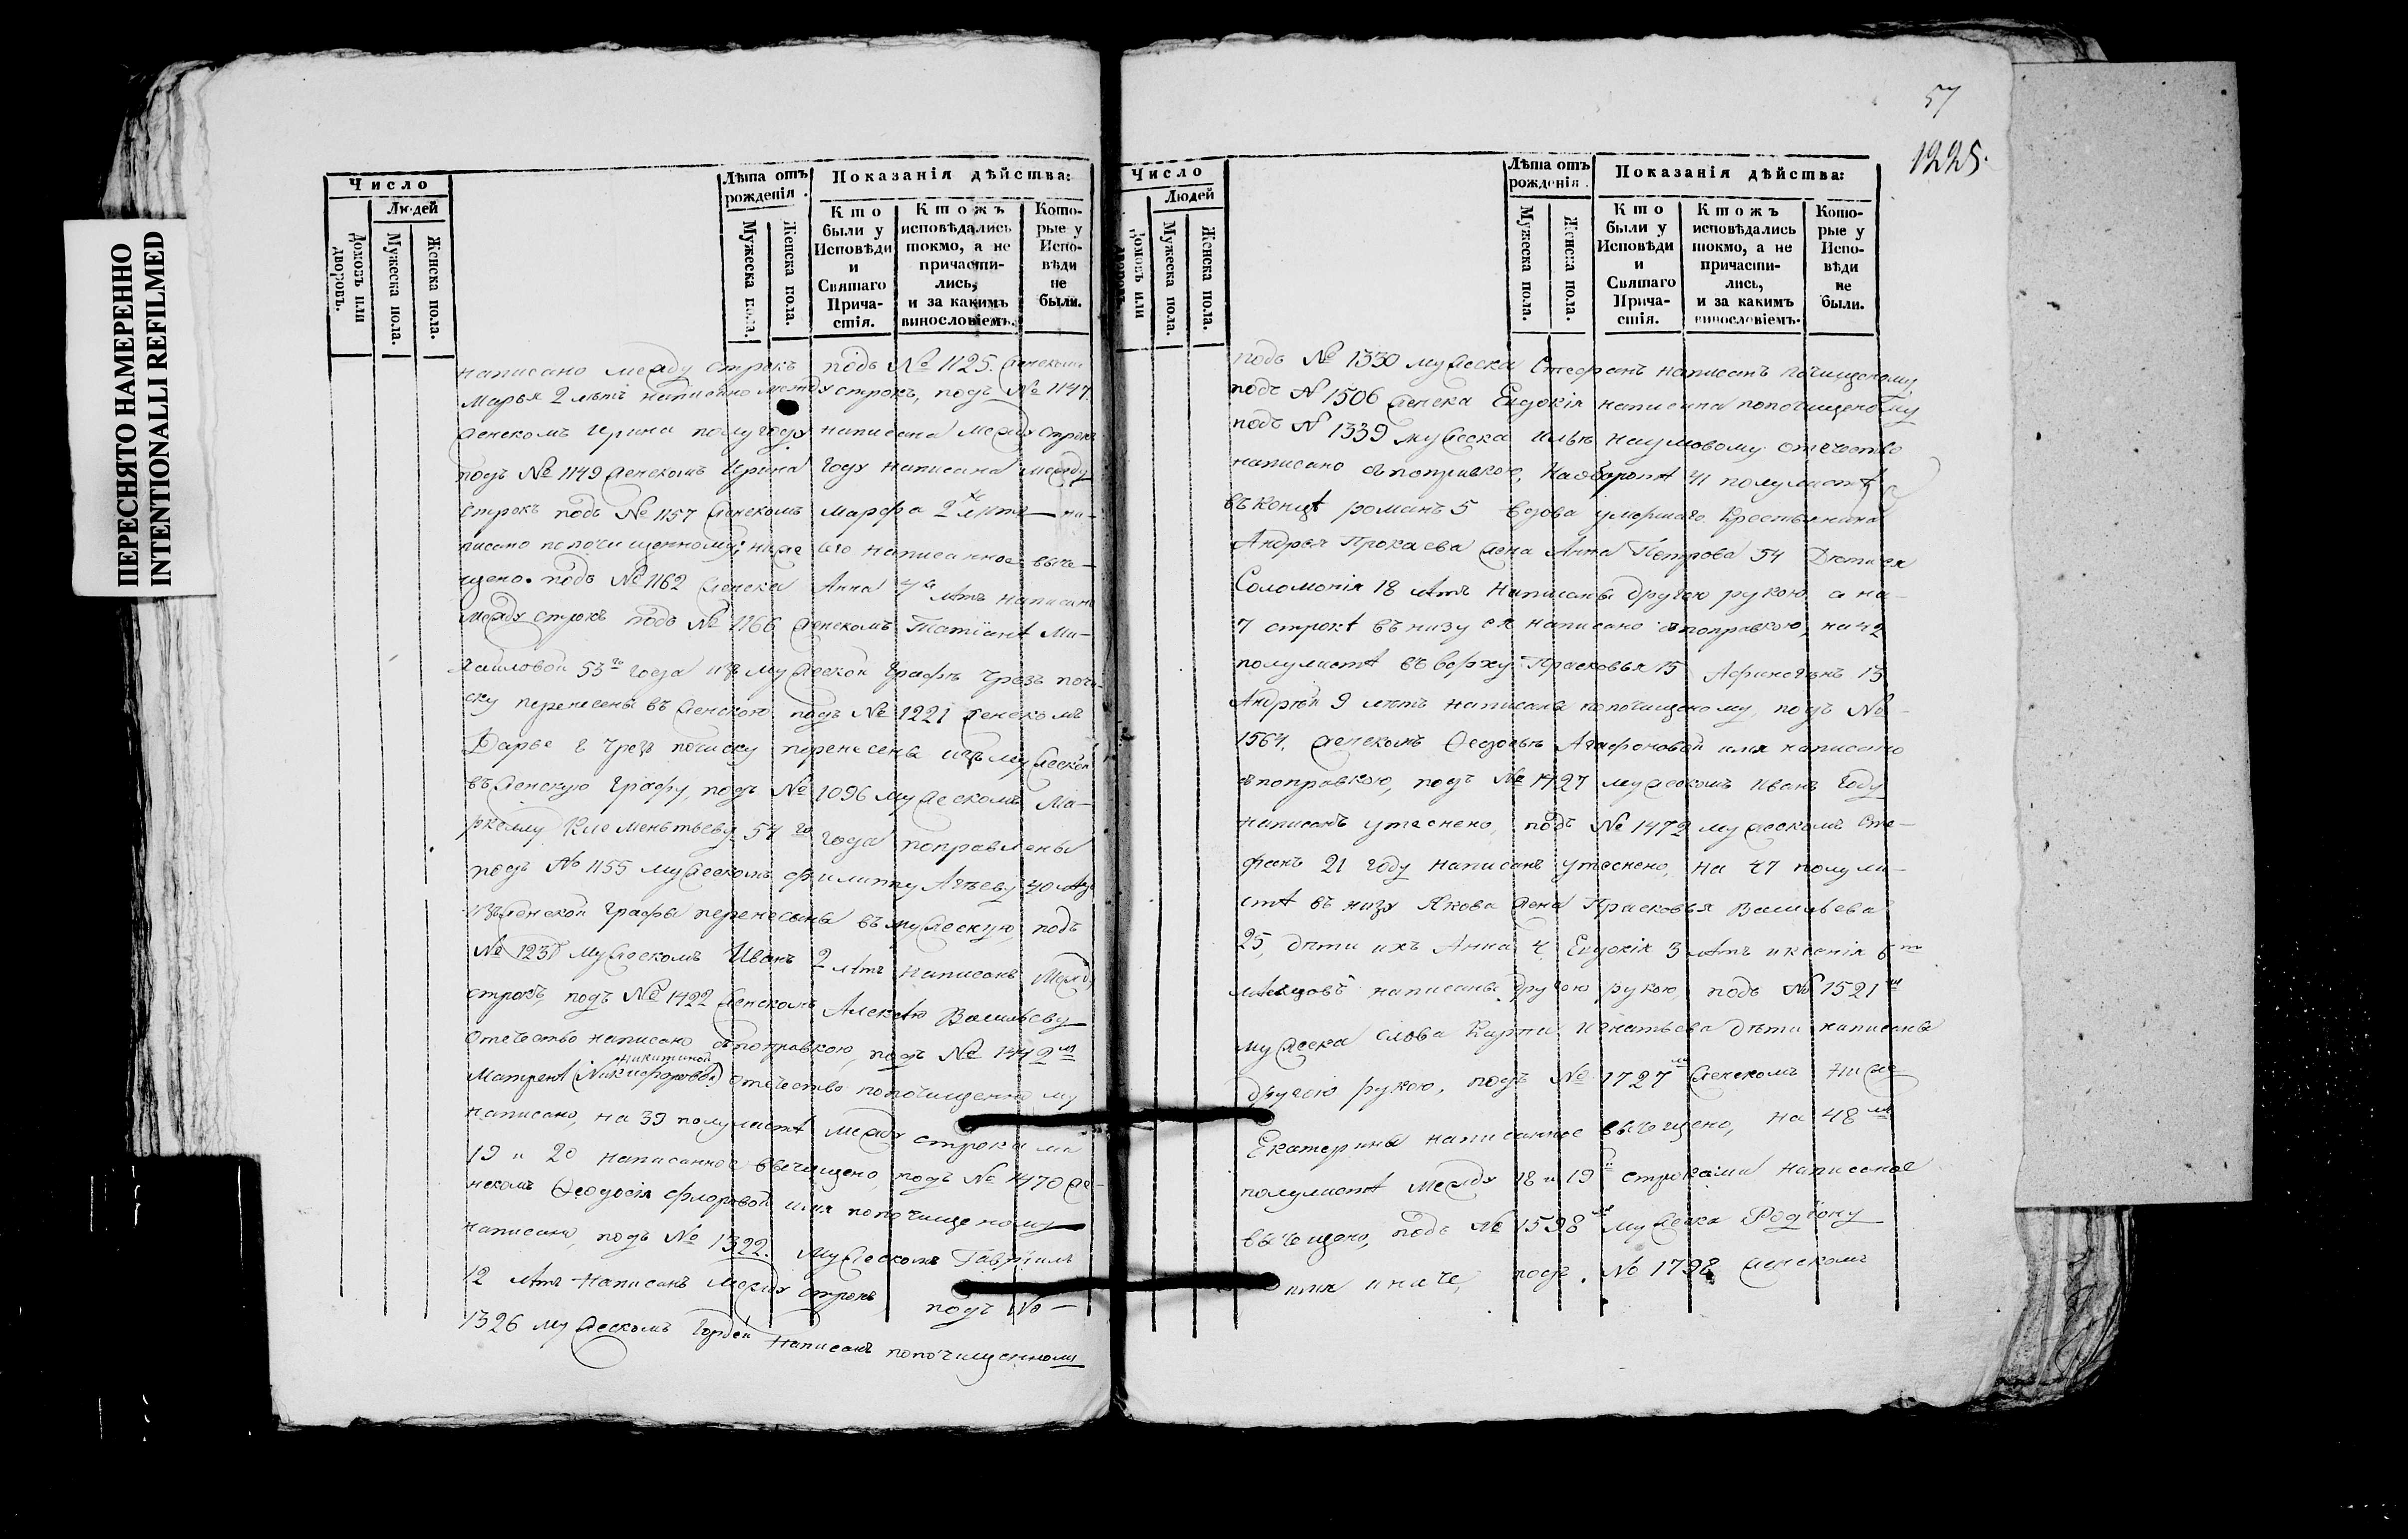 ПЕРЕСНЯТО НАМЕРЕННО
INTENTIONALLI REFILMED
Число
Людей
Домовъ или дворовъ.
Мужеска пола.
Женска пола.
Лѣта отъ рожденія.
Мужеска пола.
Женска пола.
Показанія дѣйства:
Кто были у Исповѣди и Святаго Причастія.
Ктожъ исповѣдались токмо, а не причастились, и за какимъ винословіемъ.
Которые у Исповѣди не были.
написано между строкъ подъ № 1125. женскомъ
Марья 2 лѣтъ написано между строкъ, подъ № 1147
женскомъ Ирина полугоду написана между строкъ
подъ № 1149 женскомъ Ирина году написана между
строкъ подъ № 1157 женскомъ Марфа 2хъ лѣтъ на-
писано попочищенному, ниже его написанное выче-
щено. подъ № 1162 женска Анна лѣтъ написана
между строкъ подъ № 1166 женскомъ Татіанѣ Ми-
хайловой 53го года изъ мужеской графѣ чрезъ почи-
ску перенесены въ женскою подъ № 1221 женскомъ
Дарье чрезъ почиску перенесены изъ мужеской
въ женскую графу, подъ № 1096 мужескомъ Ма-
ркеллу Клементьеву 54го года поправлены
подъ № 1155 мужескомъ Филиппу 40 лѣтъ
изъ женской графы перенесены въ мужескую, подъ
№ 123 мужескомъ Иванъ 2 лѣтъ написанъ между
строкъ, подъ № 1422 женскомъ Алексѣю Васильеву
отечество написано съ поправкою, подъ № 1442м
никитиной
Матренѣ (Никифоровой) отечество попочищенному
написано, на 39 полулистѣ между строками
19 и 20 написанное вычищено, подъ № 1470 же-
нскомъ Ѳеодосія Флоровой имя попочищеному
написано, подъ № 1322. мужескомъ Гавріилъ
12 лѣтъ написанъ между строкъ подъ №
1326 мужескомъ Гордей написанъ попочищенному
57
1225.
Число
Людей
Домовъ или дворовъ.
Мужеска пола.
Женска пола.
Лѣта отъ рожденія.
Мужеска пола.
Женска пола.
Показанія дѣйства:
Кто были у Исповѣди и Святаго Причастія.
Ктожъ исповѣдались токмо, а не причастились, и за какимъ винословіемъ.
Которые у Исповѣди не были.
подъ № 1330 мужеска Стефанъ написанъ почищеному
подъ № 1506 женска Евдокія написана попочищеному
подъ № 1339 мужеска Илью Наумовому отечество
написано съ поправкою, на оборотѣ 41 полулистѣ
въ концѣ романъ 5 вдова умершаго крестьянина
Андрея Прокаева жена Анна Петрова 54 Дети ея
Соломонія 18 лѣтъ написаны другою рукою, а на
7 строкѣ въ низу ея написано съ поправкою, на 42
полулистѣ въ верху Прасковья 15 Афиногенъ 13
Андрей 9 лѣтъ написаны попочищеному, подъ №
1564. женскомъ Ѳедосьи Агафоновой имя написано
съ поправкою, подъ № 1427 мужескомъ Иванъ году
написанъ утеснено, подъ № 1472 мужескомъ Сте-
фанъ 21 году написанъ утеснено, на 47 полули-
стѣ въ низу Якова жена Прасковья Васильева
25, дѣти ихъ Анна 4, Евдокія 3 лѣтъ и ксенія 6ти
мѣсяцовъ написаны другою рукою, подъ № 1521м
мужеска слова Карпа Игнатьева дѣти написаны
другою рукою, подъ № 1727м женскомъ ниже
Екатерины написанное вычещено, на 48м
полулистѣ между 18 и 19й строками написаное
вычещено, подъ № 1598м мужеска Родіону
имя иначе, подъ № 1798 женскомъ